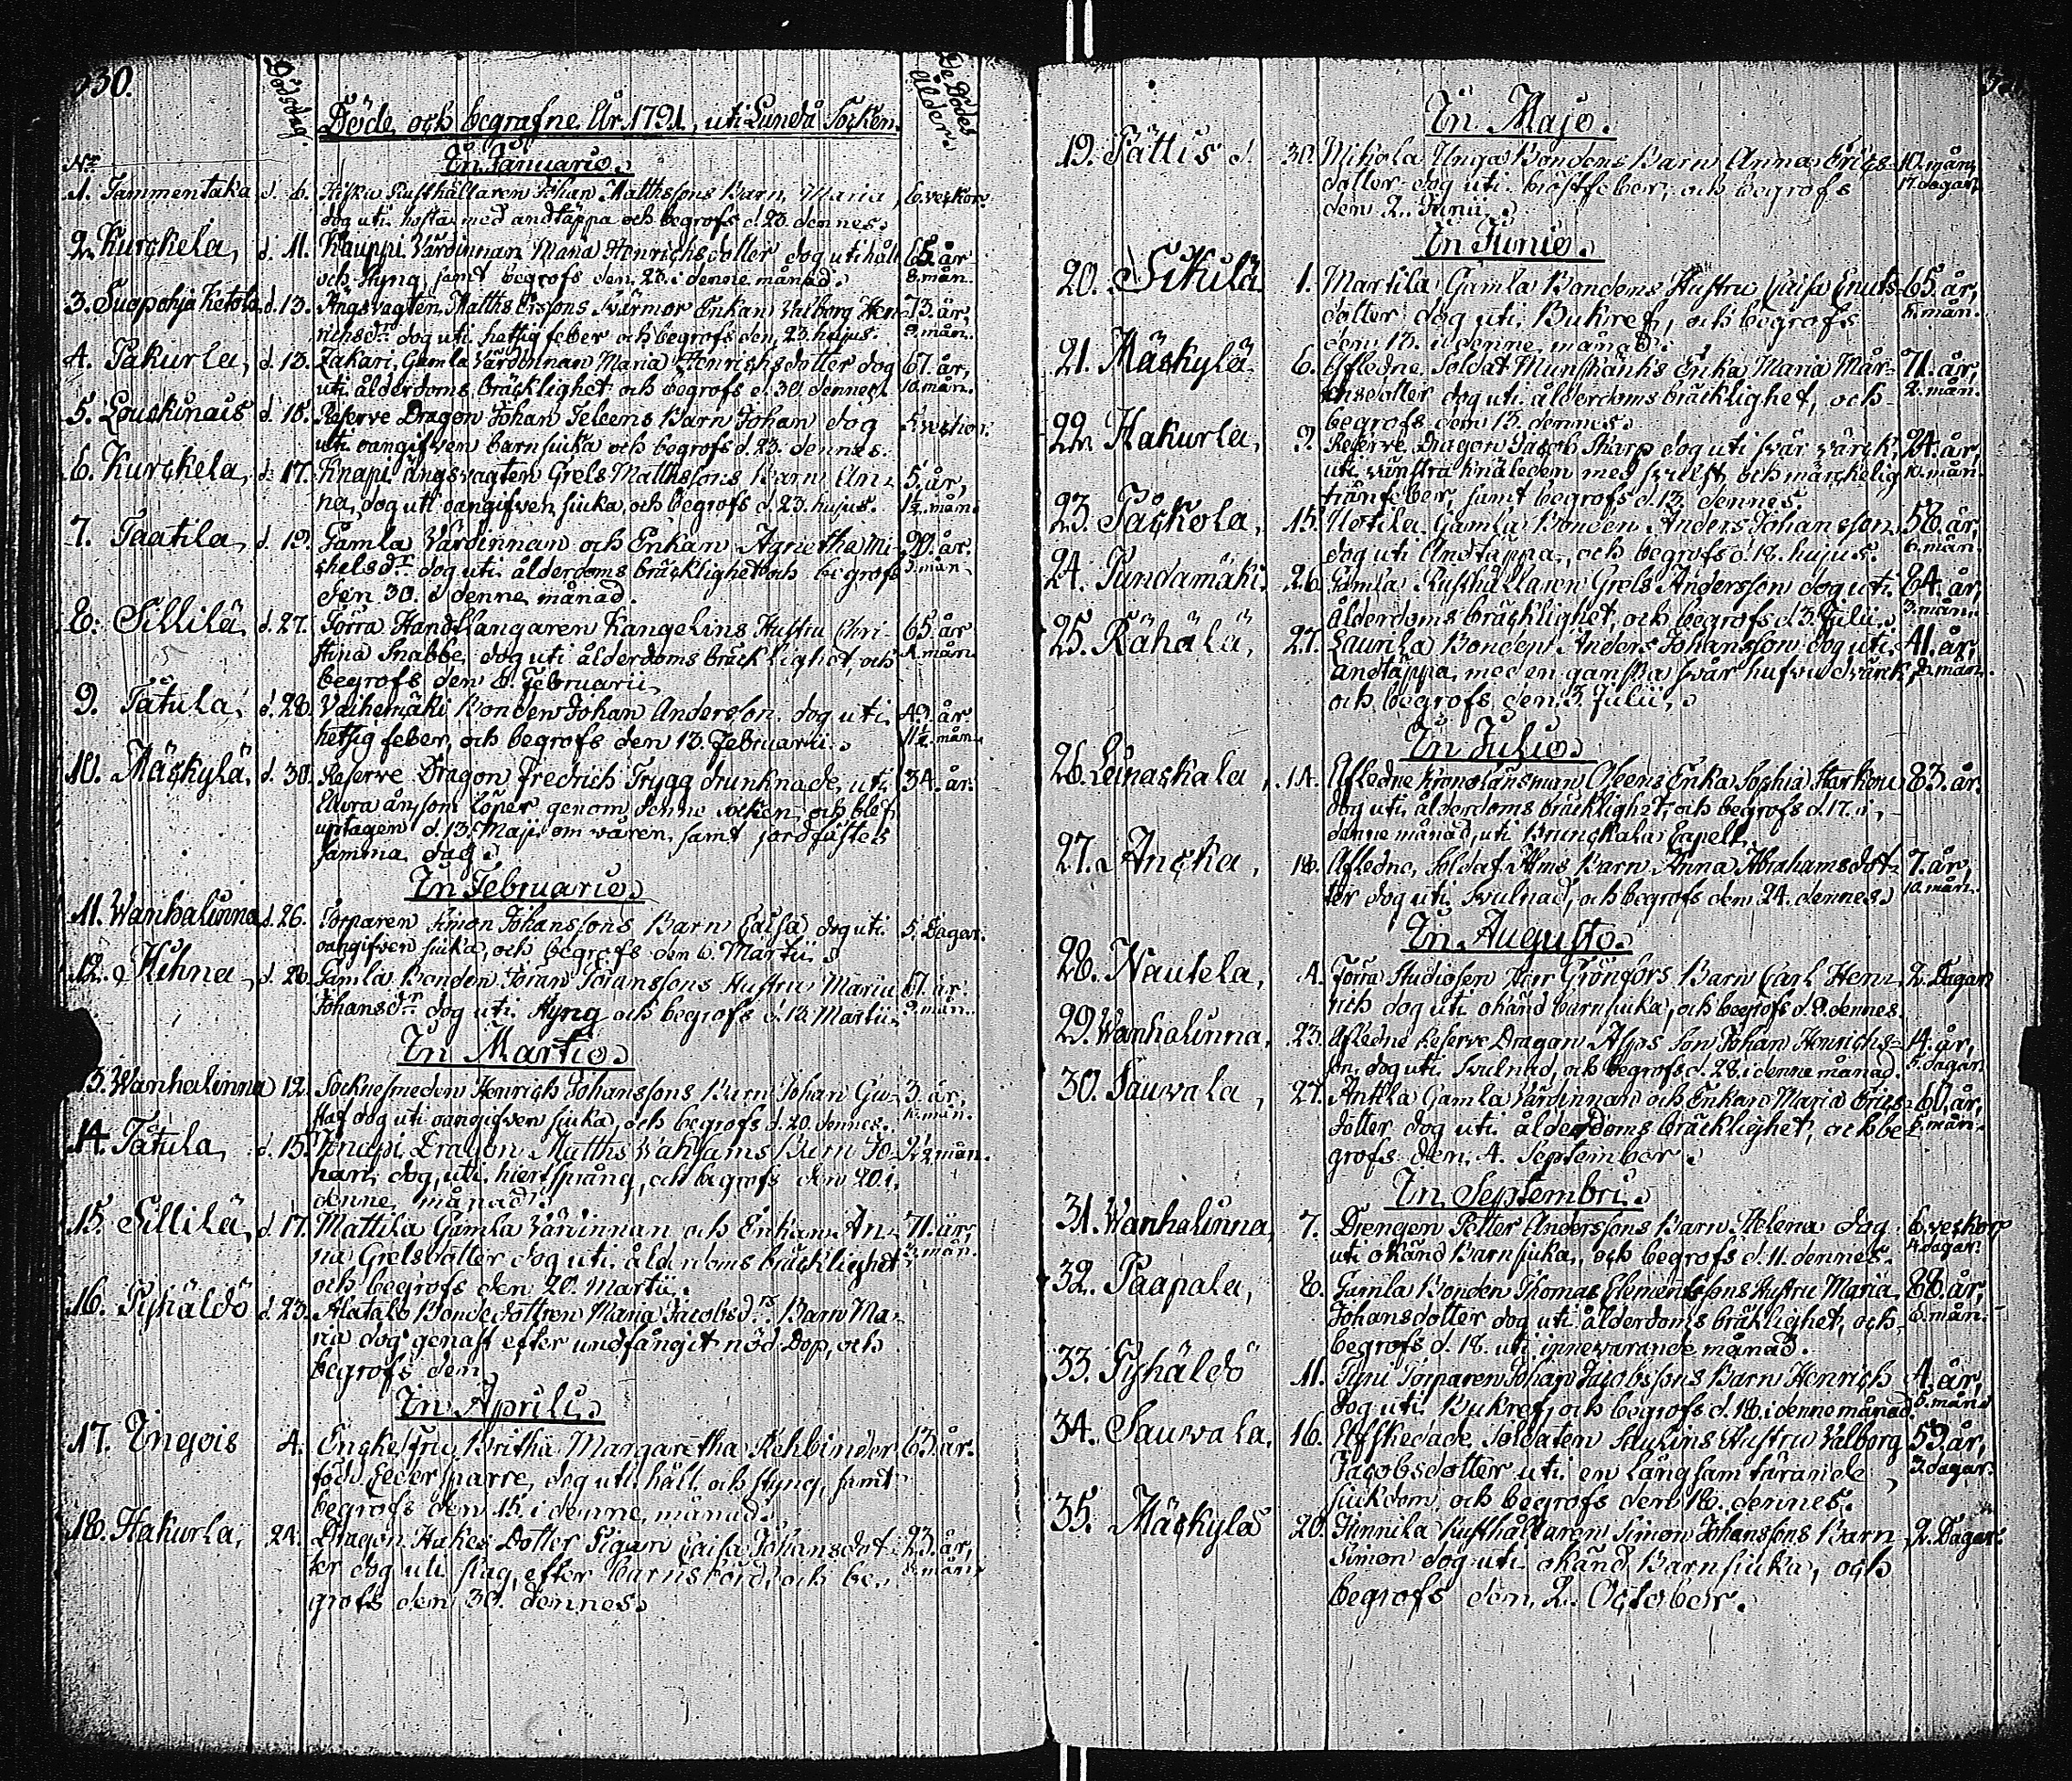 330.
Dödsdag.
De Dödes ålder.
Döde och begrafne År 1791, uti Lundå Socken.
Nr.
In Januario.
1. Tammentaka d. 6. Rusthållaren Johan Matthssons Barn Maria 6. veckor.
dog uti hosta med andtäppa och begrofs d. 23. dennes.
2. Kurckela, d. 11. Kauppi Värdinnan Maria Henrichsdotter dog uti håll 65. år
och styng, samt begrofs den 23. i denne månad. 8. mån.
3. Suopohja Ketola d. 13. Ängsvagten Matths Erssons Svärmor Enkan Valborg Hen- 73. år,
richsdr. dog uti hettsig feber och begrofs den 23. hujus. 9. mån.
4. Pakurla, d. 13. Zakari, Gamla Värdinnan Maria Henrichsdotter dog 67. år,
uti ålderdoms bräcklighet och begrofs d. 30. dennes. 10. mån.
5. Louckinais d. 16. Reserve Dragon Johan Teleens Barn Johan dog 5. veckor.
uti oangifven barnsjuka och begrofs d. 23. dennes.
6. Kurckela, d. 17. Knapi Ängsvagten Grels Matthssons Barn An- 5. år,
na, dog uti oangifven sjuka, och begrofs d. 23. hujus. 1½. mån.
7. Taatila, d. 19. Gamla Värdinnan och Enkan Agnetha Mi- 90. år.
chelsdr. dog uti ålderdoms bräcklighet och begrofs 3. mån.
den 30. i denne månad.
8. Sillilä, d. 27. Förra Handtlangaren Kangelins Hustru Chri- 65. år
stina Snabbe, dog uti ålderdoms bräcklighet, och 1. mån.
begrofs den 6. Februarii.
9. Tåtula, d. 28. Vaihemäki Bonden Johan Andersson dog uti 49. år
hetsig feber, och begrofs den 13. Februarii. 11½. mån.
10. Mäckylä, d. 30. Reserve Dragon Fredrich Trygg drunknade uti 34. år.
Aura ån, som löper genom denne socken, och blef
uptagen d. 13. Maji om våren, samt jordfästes
samma dag.
In Februario.
11. Wanhalinna d. 26. Torparen Simon Johanssons Barn Caisa dog uti 5. Dagar.
oangifven sjuka, och begrofs den 6. Martii.
12. Hihna, d. 28. Gamla Bonden Jöran Jöranssons Hustru Maria 67. år
Johansdr. dog uti styng och begrofs d. 13. Martii. 9. mån.
In Martio.
13. Wanhalinna 12. Socknesmeden Henrich Johanssons Barn Johan Gu- 3. år,
staf dog uti oangifven sjuka, och begrofs d. 20. dennes. 10. mån.
14. Tåtula, d. 15. Knapi Dragon Matths Wakkams Barn Jo- 2½ mån.
han, dog uti hiertsprång, och begrofs den 20. i
denne månad.
15. Sillilä, d. 17. Mattila Gamla Värdinnan och Enkan An- 71. år,
na Grelsdotter dog uti ålderdoms bräcklighet 3. mån.
och begrofs den 20. Martii.
16. Pyhäldö d. 23. Alatalo Bondedottren Maria Jacobsdrs. Barn Ma-
ria dog genast efter undfångit nöd Dop, och
begrofs den
In Aprili.
17. Yngois 4. Enckefru Britha Margaretha Rehbinder 63. år.
född Cedersparre, dog uti håll och styng, samt
begrofs den 15. i denne månad.
18. Hakurla, 24. Dragon Hakes Dotter Pigan Caisa Johansdot- 23. år,
ter dog uti slag, efter barnsbörd, och be- 8. mån.
grofs den 30. dennes.
In Majo.
19. Pättis d. 30. Mikola Unga Bondens Barn Anna Erics- 10. mån,
dotter dog uti bröstfeber, och begrofs 17. dagar.
den 2. Junii.
In Junio.
20. Sikilä 1. Martila Gamla Bondens Hustru Caisa Cnuts- 65. år,
dotter dog uti Bukref, och begrofs mån.
den 13. i denne månad.
21. Mäckylä 6. Afledne Soldat Munskänks Enka Maria Mår- 71. år,
tensdotter dog uti ålderdoms bräcklighet, och 2. mån.
begrofs den 13. dennes.
22. Hakurla, 9. Reserve Dragon Jacob Skarp dog uti svår värck 24. år,
uti vänstra knäleden med svullst och märckelig 10. mån.
trånfeber, samt begrofs d. 13. dennes.
23. Påckola, 15. Uotila Gamla Bonden Anders Johansson 58. år,
dog uti Andtäppa, och begrofs d. 18. hujus. 6. mån.
24. Pundamäki, 26. Gamla Rusthållaren Grels Andersson dog uti 64. år,
ålderdoms bräcklighet, och begrofs d. 3. Julii. 3. mån.
25. Rähälä, 27. Laurila Bonden Anders Johansson dog uti 41. år,
Andtäppa, med en ganska svår hufvudvärck, 8. mån.
och begrofs den 3. Julii.
In Julio.
26. Leinaskala, 14. Afledne Kronolänsman Oleens Enka Sophia Starkou 83. år.
dog uti ålderdoms bräcklighet, och begrofs d. 17. i
denne månad, uti Brunckala Capell.
27. Ancka, 18. Afledne Soldat Ams Barn Anna Abrahamsdot- 7. år,
ter dog uti Svulnad, och begrofs den 24. dennes. 10. mån.
In Augusto.
28. Nautela, 4. Förra Studiosen Herr Grönfors Barn Carl Hen- 2. Dagar
rich dog uti okänd barnsjuka, och begrofs d. 9. dennes.
29. Wanhalinna, 23. Afledne Reserve Dragon Asps Son Johan Henrichs- 14. år,
son, dog uti Svulnad, och begrofs d. 28. i denne månad. 5. dagar
30. Sauvala, 27. Anttla Gamla Värdinnan och Enkan Maria Erics- 60. år,
dotter dog uti ålderdoms bräcklighet, och be- 6. mån.
grofs den 4. September.
In Septembri.
31. Wanhalinna, 7. Drengen Petter Anderssons Barn Helena dog 6. veckor
uti okänd Barnsjuka, och begrofs d. 11. dennes. 4. dagar.
32. Paapala, 8. Gamla Bonden Thomas Clementssons Hustru Maria 88. år,
Johansdotter dog uti ålderdoms bräklighet, och 6. mån.
begrofs d. 18. uti innevarande månad.
33. Pyhäldö 11. Pyni Torparen Johan Jacobssons Barn Henrich 4. år,
dog uti Bukref, och begrofs d. 18. i denne månad. 5. mån
34. Sauvala, 16. Afskedade Soldaten Paulins Hustru Valborg 59. år,
Jacobsdotter uti en långsam tärande 3. dagar.
sjukdom, och begrofs den 18. dennes.
35. Mäckylä 20. Junnila Rusthållaren Simon Johanssons Barn 2. Dagar.
Simon dog uti okänd Barnsjuka, och
begrofs den 2. October.